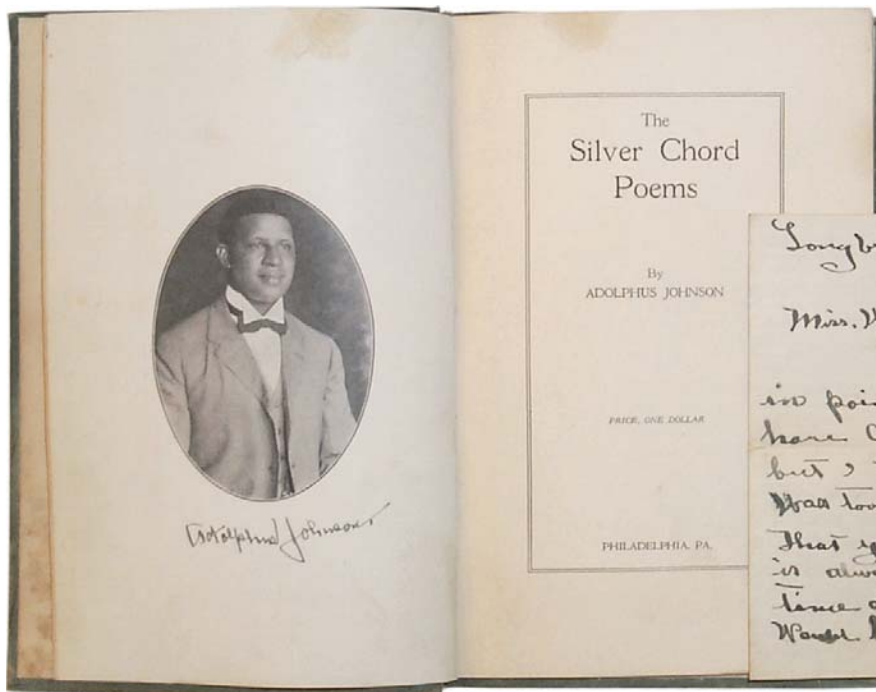 Adolphus Johnson
The
Silver Chord
Poems
By
ADOLPHUS JOHNSON
PRICE, ONE DOLLAR
PHILADELPHIA, PA.
Miss.
in
have
but
Was too
That
is
Would